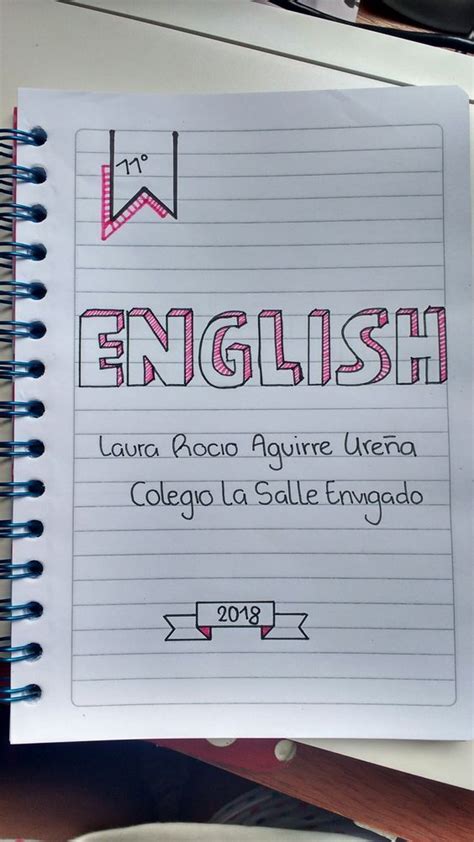 11°
ENGLISH
Laura Rocio Aguirre Ureña
Colegio La Salle Envigado
2018